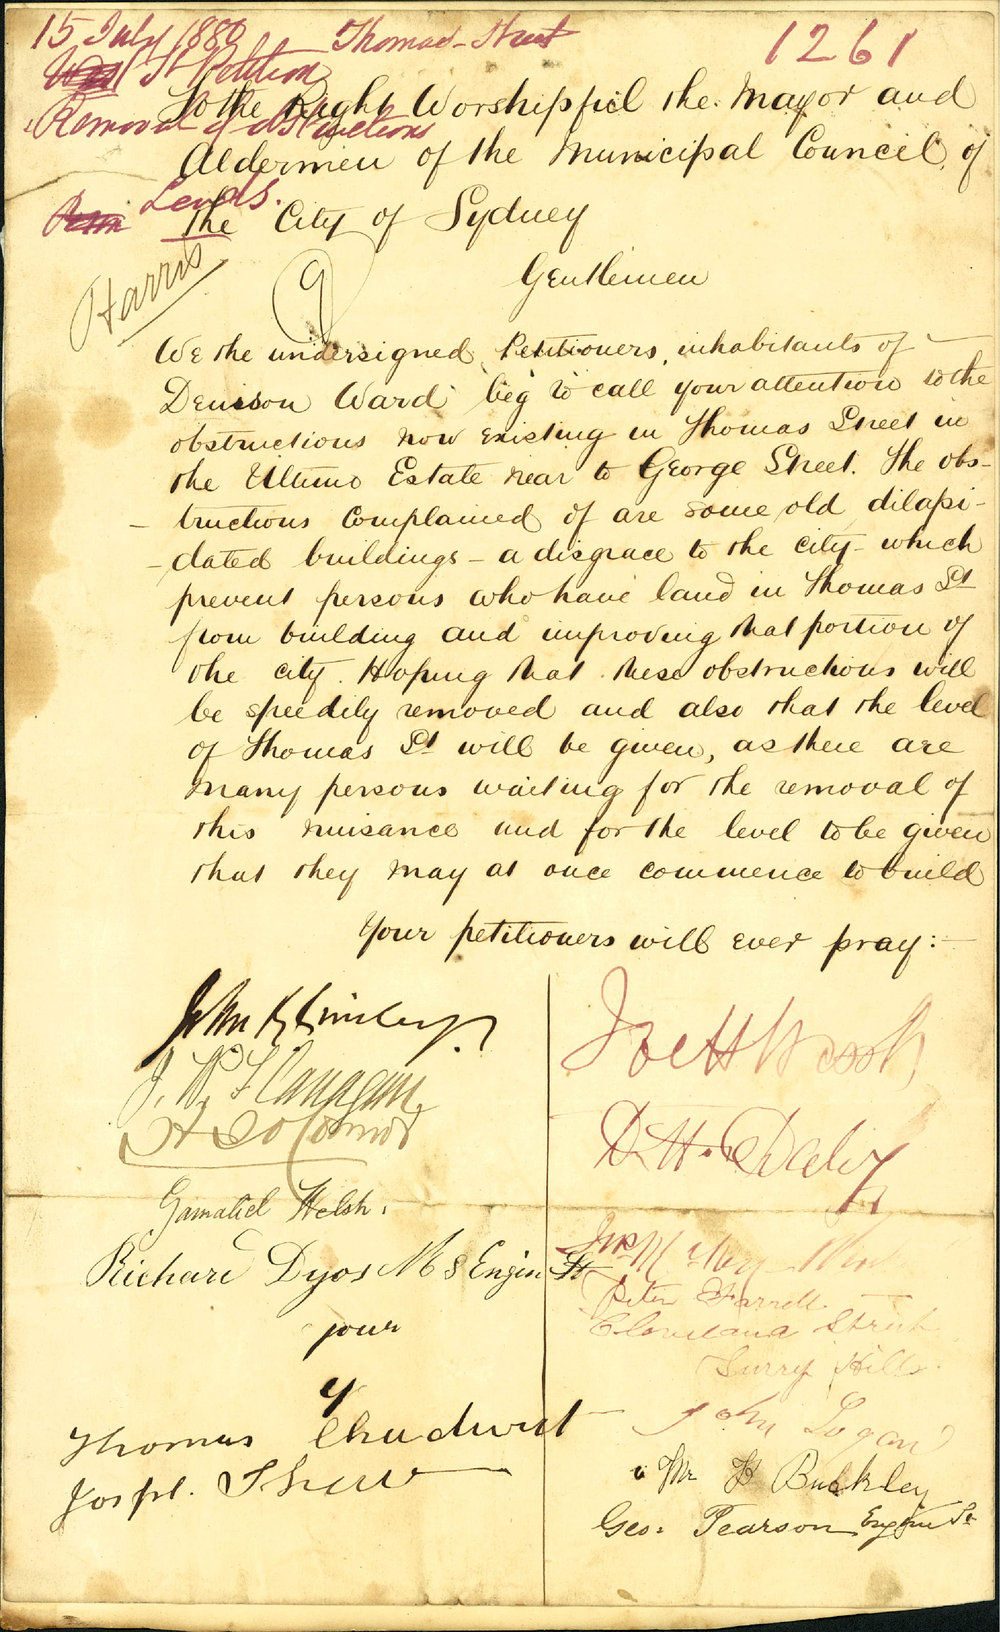 15 July 1880 Thomas Street 1261
St Petition
Removal of obstructions
Levels.
Harris
9
To the Right Worshipful the Mayor and
Aldermen of the Municipal Council of
the City of Sydney
Gentlemen
We the undersigned Petitioners, inhabitants of
Denison Ward beg to call your attention to the
obstructions now existing in Thomas Street in
the Ultimo Estate near to George Street. The obs-
tructions complained of are some old dilapi-
dated buildings - a disgrace to the city - which
prevent persons who have land in Thomas St
from building and improving that portion of
the city. Hoping that these obstructions will
be speedily removed and also that the level
of Thomas St will be given, as there are
many persons waiting for the removal of
this nuisance and for the level to be given
that they may at once commence to build
Your petitioners will ever pray:-
John
J. W. Flanagan
O'Connor
Gamaliel Welsh.
Richard Dyos M S Engine St
your
Thomas Chadwick
Joseph
Joe H
D. H. Daly
Peter Farrell
Cleveland Street
Surry Hills.
John Logan
Mr H Buckley
Geo. Pearson Engine St